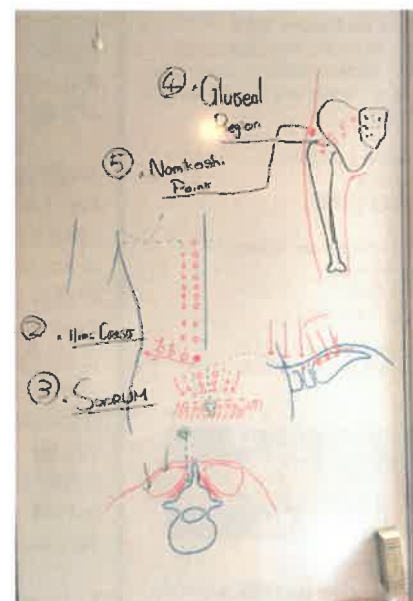 ④. Gluteal
Region
⑤. Namkoshi
Point
② . Iliac Crest
③. Sacrum